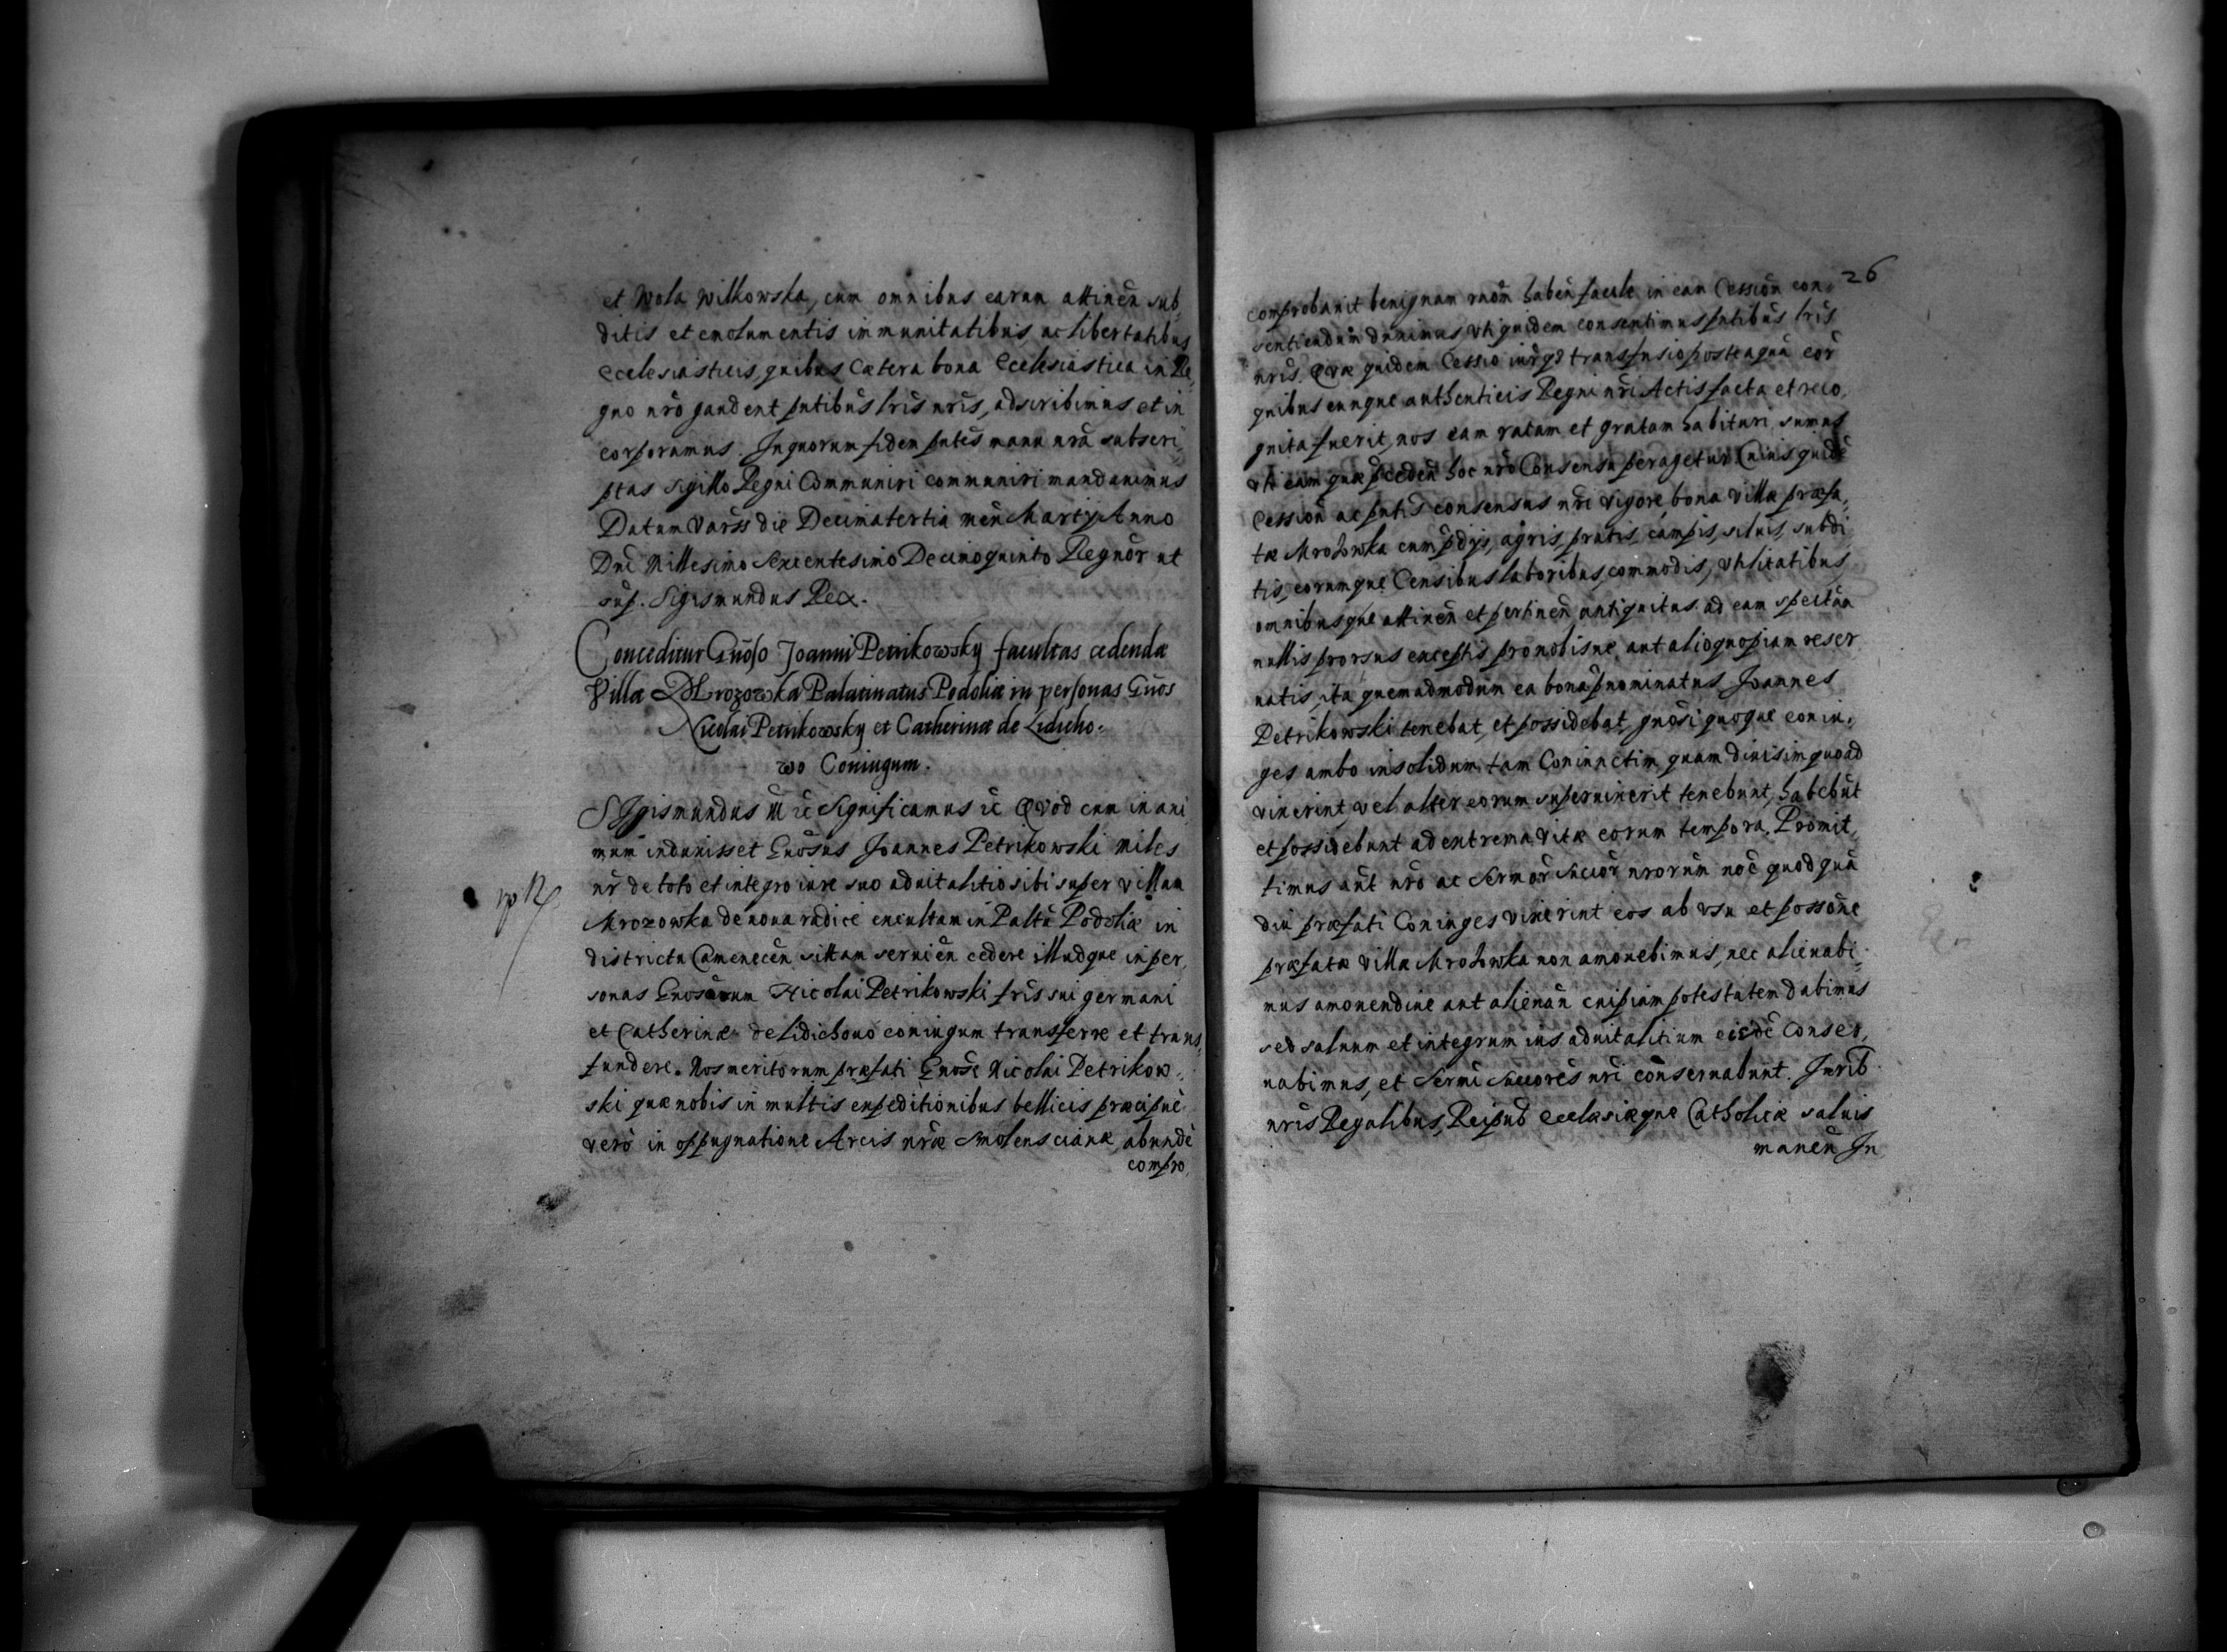 et Wola Wilkowska, cum omnibus earum attinen̄ sub,
ditis et emolumentis immunitatibus ac libertatibus
ecclesiasticis, quibus cætera bona Ecclesiastica in Re,
gno nr̄o gaudent pn̄tibus lr̄is nr̄is, adscribimus et in
corporamus. In quorum fidem pn̄tes manu nr̄a subscri,
ptas sigillo Regni Communiri communiri mandauimus
Datum Varss die Decima tertia men̄ Martij Anno
Dn̄i Millesimo Sexcentesimo Decimoquinto Regnor̄ ut
sup. Sigismundus Rex.
Conceditur Gn̄oso Joanni Petrikowsky facultas cedendæ
Villæ Mrozowka Palatinatus Podoliæ in personas Gn̄os
Nicolai Petrikowsky et Catherinæ de Lidicho-
wo Coniugum.
SIgismundus III ꝛc Significamus ꝛc Qvod cum in ani
mum induxisset Gn̄osus Joannes Petrikowski miles
nr̄ de toto et integro iure suo aduitalitio sibi super villam
Mrozowka de noua radice excultam in Paltū Podoliæ in
districtu Camenecen̄ sittam seruien̄ cedere illudque in per,
sonas Gn̄osorum Nicolai Petrikowski fr̄is sui germani
et Catherinæ de Lidichouo coniugum transferre et trans,
fundere. Nos meritorum præfati Gn̄osi Nicolai Petrikow-
ski quæ nobis in multis expeditionibus bellicis præcipuè
verò in oppugnatione Arcis nr̄æ Smolenscianæ, abundè
compro,
26
comprobauit benignam rn̄om haben̄ facile in eam Cession̄ con-
sentiendum duximus vti quidem consentimus pn̄tibus lr̄is
nr̄is. Quæ quidem Cessio iurisq3 transfusio posteaquā cor̄
quibuscunque authenticis Regni nr̄i Actis facta et reco,
gnita fuerit, nos eam ratam et gratam habituri sumus
vti eam quæ p̄ceden̄ hoc nr̄o Consensu peragetur Cuius quidē
Cession̄ ac pn̄tis consensus nr̄i vigore bona villæ præfa,
tæ Mrozowka cum p̄dijs, agris, pratis, campis, siluis, subdi
tis, eorumque Censibus laboribus, commodis, vtilitatibus,
omnibusque attinen̄ et pertinen̄ antiquitus ad eam spectān
nullis prorsus exceptis pro nobisue aut alio quopiam reser
uatis, ita quemadmodum ea bona p̄nominatus Joannes
Petrikowski tenebat, et possidebat, gn̄osi quoque coniu,
ges ambo insolidum tam Coniunctim quam diuisim quoad
vixerint, vel alter eorum superuixerit tenebunt, habebūt
et possidebunt ad extrema vitæ eorum tempora. Promit,
timus aūt nr̄o ac Sermor̄ Succor̄ nrorum noē quod quā
diu præfati Coniuges vixerint eos ab vsu et possōne
præfatæ villæ Mrozowka non amouebimus, nec alienabi-
mus amouendiue aut alienan̄ cuipiam potestatem dabimus
sed saluum et integrum ius aduitalitium eisdē conser,
uabimus, et Sermi Succores nr̄i conseruabunt. Jurib
nr̄is Regalibus, Reipub Ecclesiæque Catholicæ saluis
manen̄ In